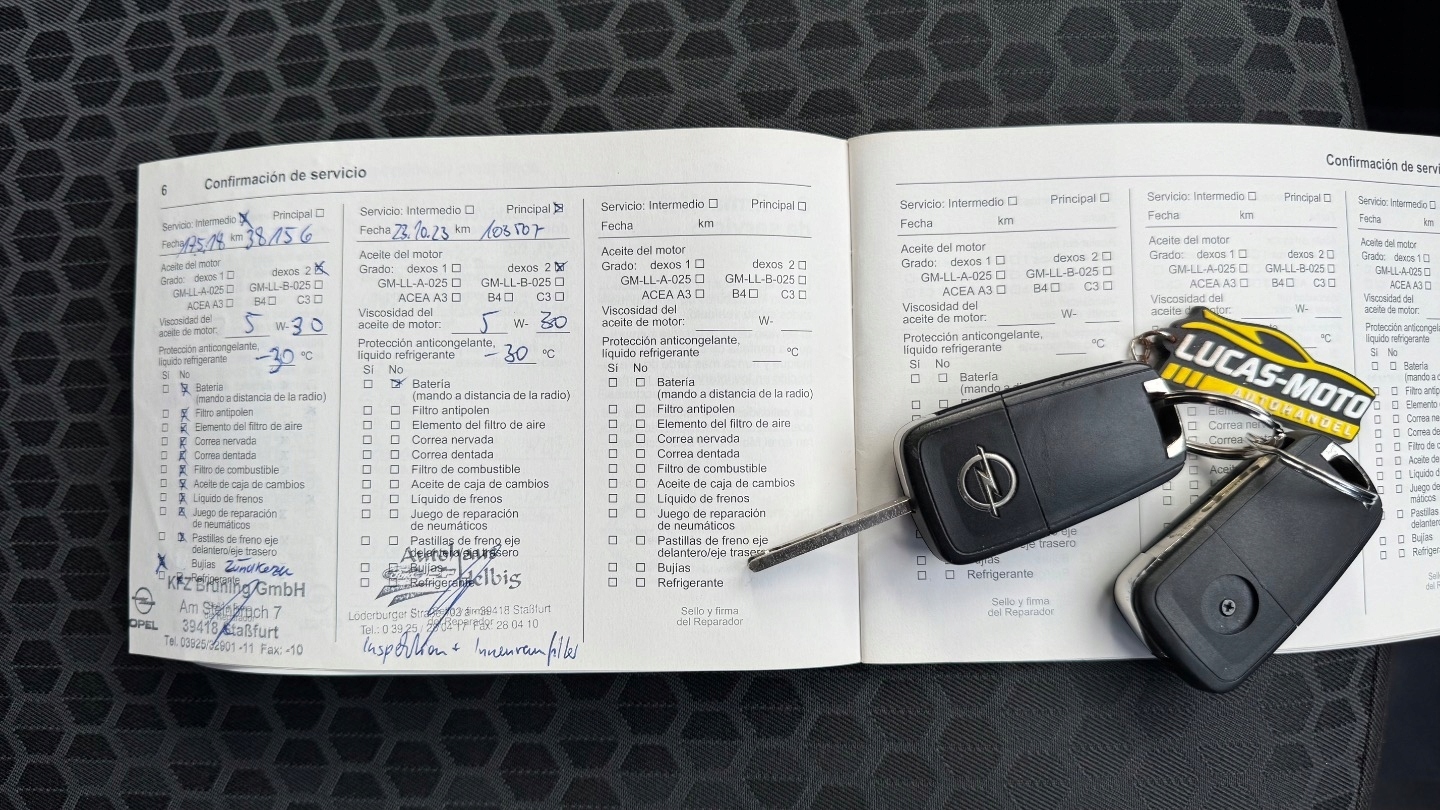 6 Confirmación de servicio
Servicio: Intermedio Principal
Fecha km 38156
Aceite del motor
Grado: dexos 1 dexos 2
GM-LL-A-025 GM-LL-B-025
ACEA A3 B4 C3
Viscosidad del
aceite de motor: 5 W- 30
Protección anticongelante,
líquido refrigerante -30 °C
Sí No
Batería
(mando a distancia de la radio)
Filtro antipolen
Elemento del filtro de aire
Correa nervada
Correa dentada
Filtro de combustible
Aceite de caja de cambios
Líquido de frenos
Juego de reparación
de neumáticos
Pastillas de freno eje
delantero/eje trasero
Bujías Zündkerzen
Refrigerante
KFZ Brüning GmbH
Am Steinbruch 7
39418 Staßfurt
Tel. 03925/32901 -11 Fax: -10
OPEL
Servicio: Intermedio Principal
Fecha 23.10.23 km 103507
Aceite del motor
Grado: dexos 1 dexos 2
GM-LL-A-025 GM-LL-B-025
ACEA A3 B4 C3
Viscosidad del
aceite de motor: 5 W- 30
Protección anticongelante,
líquido refrigerante -30 °C
Sí No
Batería
(mando a distancia de la radio)
Filtro antipolen
Elemento del filtro de aire
Correa nervada
Correa dentada
Filtro de combustible
Aceite de caja de cambios
Líquido de frenos
Juego de reparación
de neumáticos
Pastillas de freno eje
delantero/eje trasero
Bujías
Refrigerante
Autohaus
Helbig
39418 Staßfurt
del Reparador
Fax: 28 04 10
Inspektion + Innenraumfilter
Servicio: Intermedio Principal
Fecha km
Aceite del motor
Grado: dexos 1 dexos 2
GM-LL-A-025 GM-LL-B-025
ACEA A3 B4 C3
Viscosidad del
aceite de motor: W-
Protección anticongelante,
líquido refrigerante °C
Sí No
Batería
(mando a distancia de la radio)
Filtro antipolen
Elemento del filtro de aire
Correa nervada
Correa dentada
Filtro de combustible
Aceite de caja de cambios
Líquido de frenos
Juego de reparación
de neumáticos
Pastillas de freno eje
delantero/eje trasero
Bujías
Refrigerante
Sello y firma
del Reparador
Confirmación de servi
Servicio: Intermedio Principal
Fecha km
Aceite del motor
Grado: dexos 1 dexos 2
GM-LL-A-025 GM-LL-B-025
ACEA A3 B4 C3
Viscosidad del
aceite de motor: W-
Protección anticongelante,
líquido refrigerante °C
Sí No
Batería
(mando a
eje
trasero
Refrigerante
Sello y firma
del Reparador
Servicio: Intermedio Principal
Fecha km
Aceite del motor
Grado: dexos 1 dexos 2
GM-LL-A-025 GM-LL-B-025
ACEA A3 B4 C3
Viscosidad del
W-
°C
Correa
Aceite
Servicio: Intermedio
Fecha
Aceite del motor
Grado: dexos 1
GM-LL-A-025
ACEA A3
Viscosidad del
aceite de motor:
Protección antic
líquido refrigera
Batería
(mando a
Filtro antip
Elemento
Correa ne
Correa de
Filtro de
Aceite de
Líquido d
Juego de
de neum
Pastillas
delanter
Bujías
Refrige
LUCAS-MOTO
AUTOHANDEL